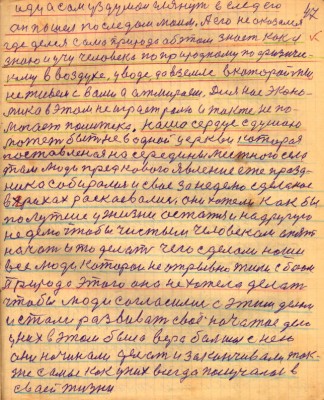 иду а сам уздумом глянуть в след его
он пошел последом моим. А его не оказался
где делся сама природа об этом знает как и
знаю и учу человека по природному по физичес-
кому в воздухе, у воде, до земле в которой мы
не живем с вами а отмираем. Для нас эконо-
мика в этом не играет роли и также не по-
могает политика. Наше сердце с душою
может быть не в одной церкви которая
поставленная на середины местного села
там люди предкового явление его празд-
ника собирались и свое за неделю сделаное
в грехах раскаевались, они хотели как бы
по лутше у жизни остатся на другую
неделю чтобы чистым человеком опять
начать то делать чего сделали наши
все люди которое не отрывно жили с бою
Природа этого она не хотела делать
чтобы люди согласились с этим делом
и стали развивать своё начатое дело
у них в этом была вера была и с нею
они начинали делать и заканчивали так-
же само как у них всегда получалось в
своей жизни